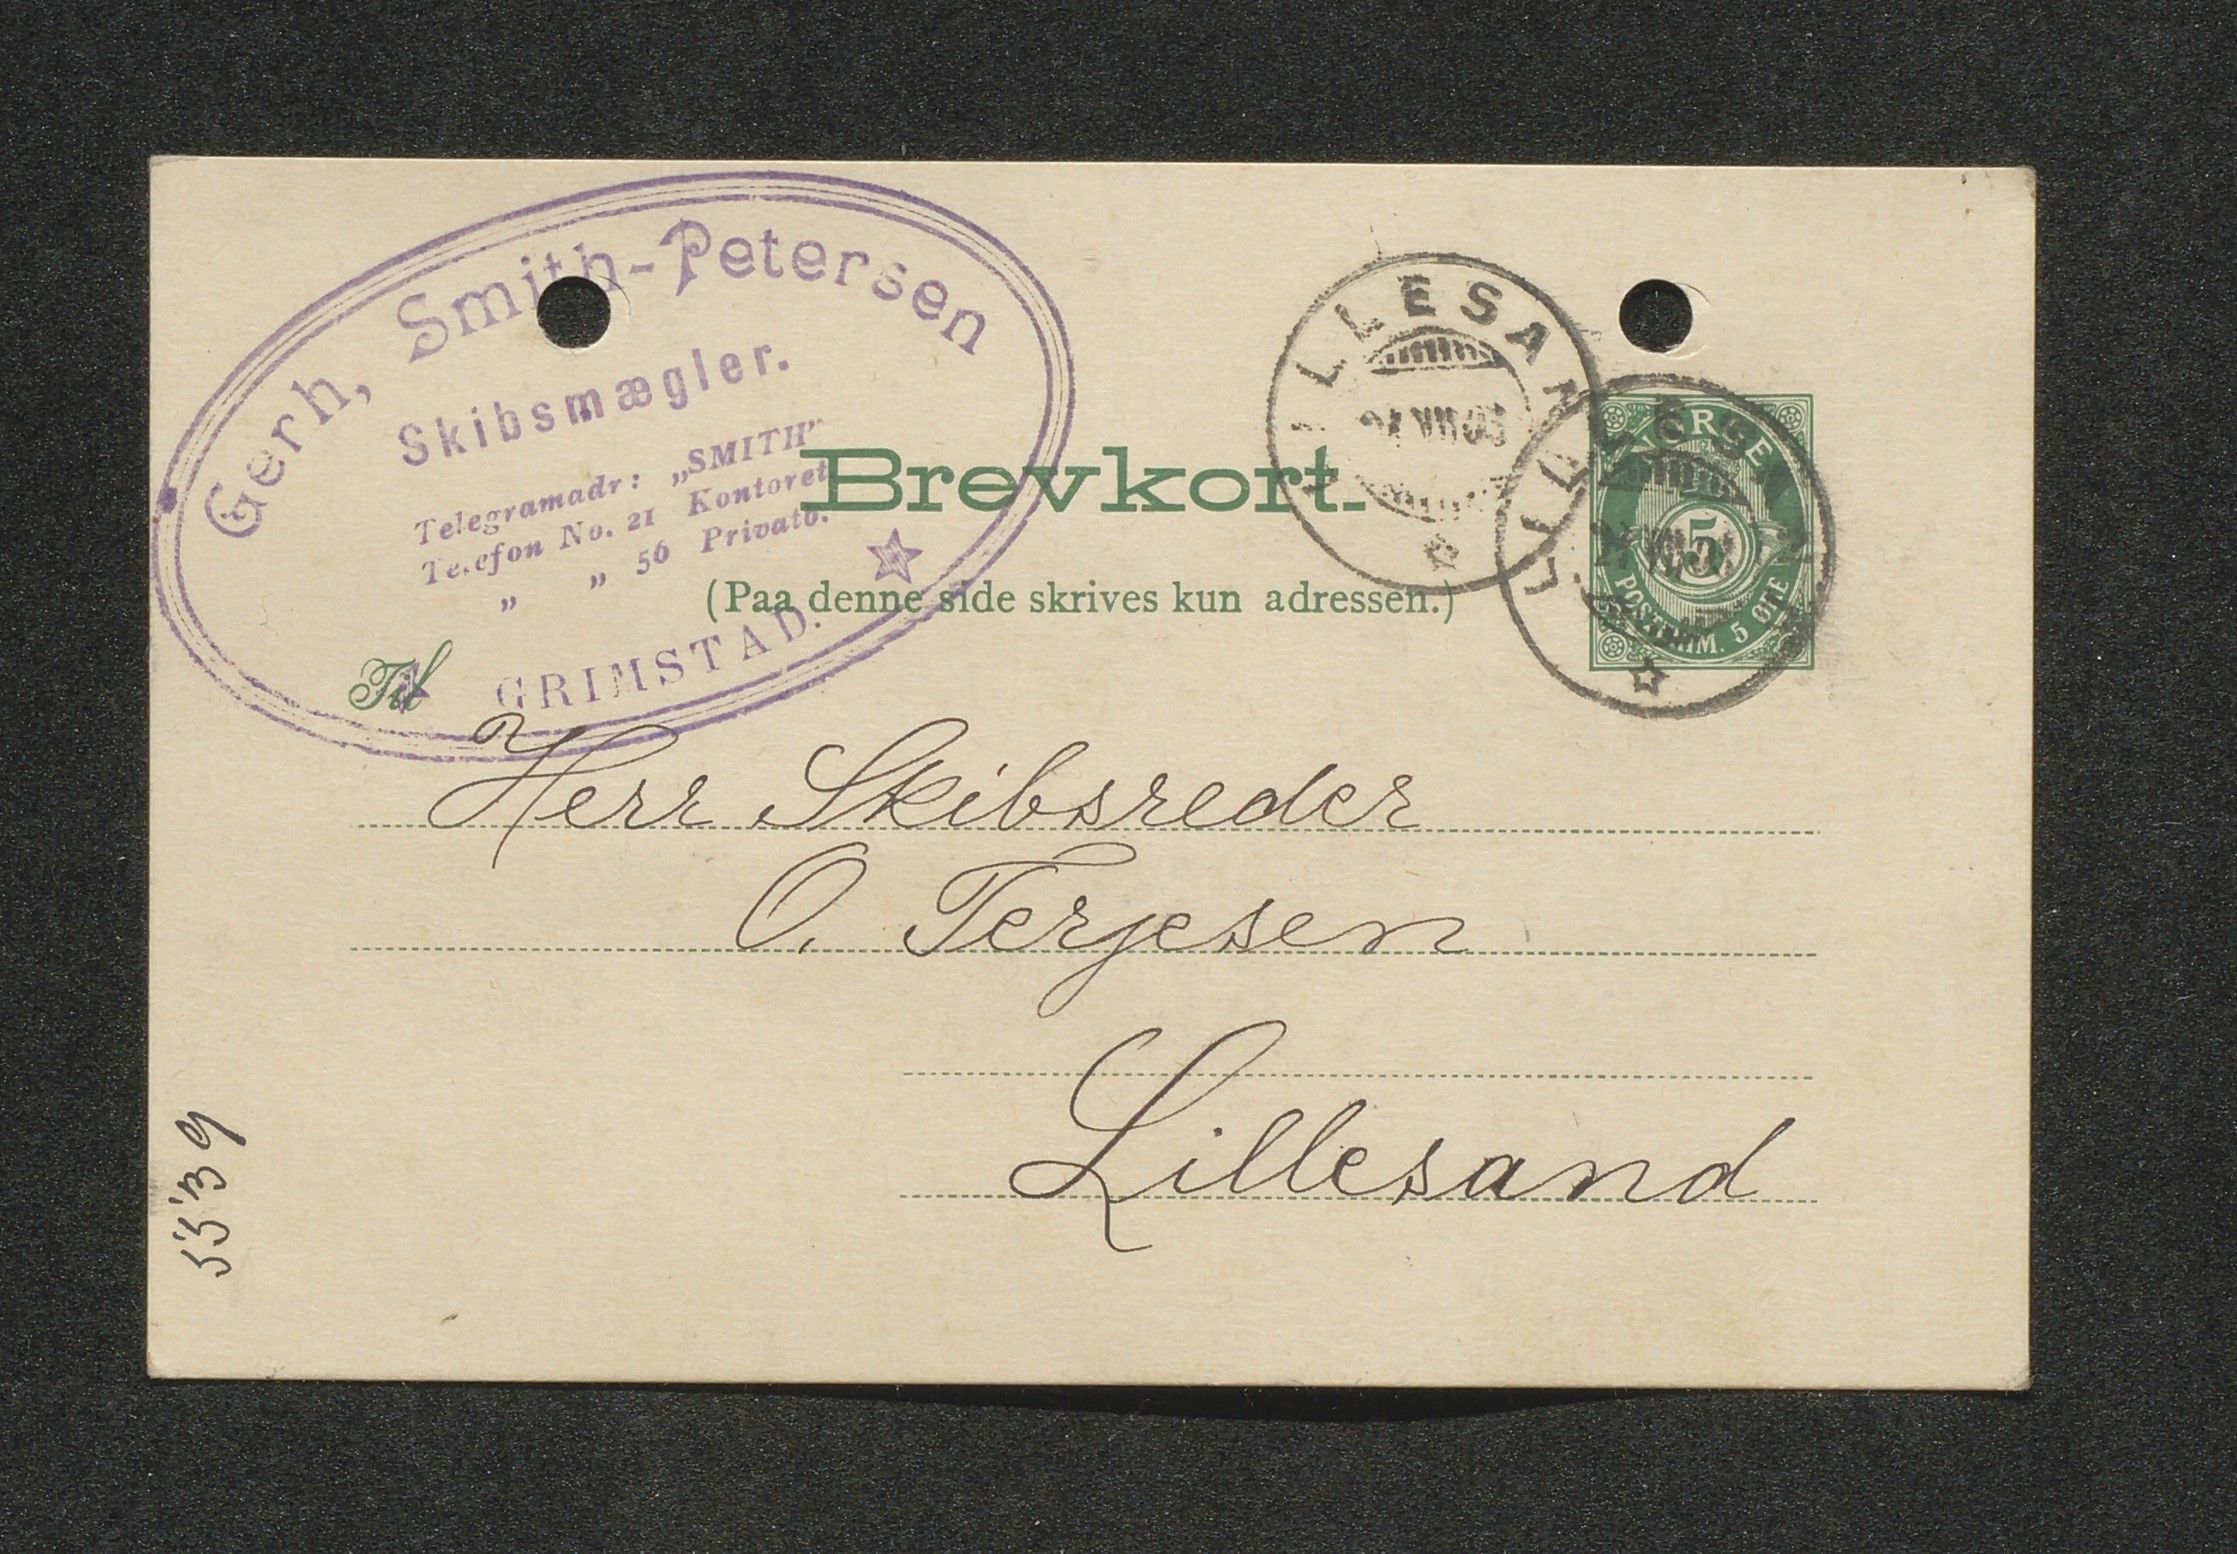 Gerh, Smith-Petersen
Skibsmægler.
Telegramadr: „SMITH”
Telefon No. 21 Kontoret
„ „ 56 Privato.
GRIMSTAD.
Brevkort.
(Paa denne side skrives kun adressen.)
Til
LILLESAND
VII 03
LILLESAND
NORGE
5
POSTFRIM. 5 ØRE
Herr Skibsreder
O. Terjesen
Lillesand
5539